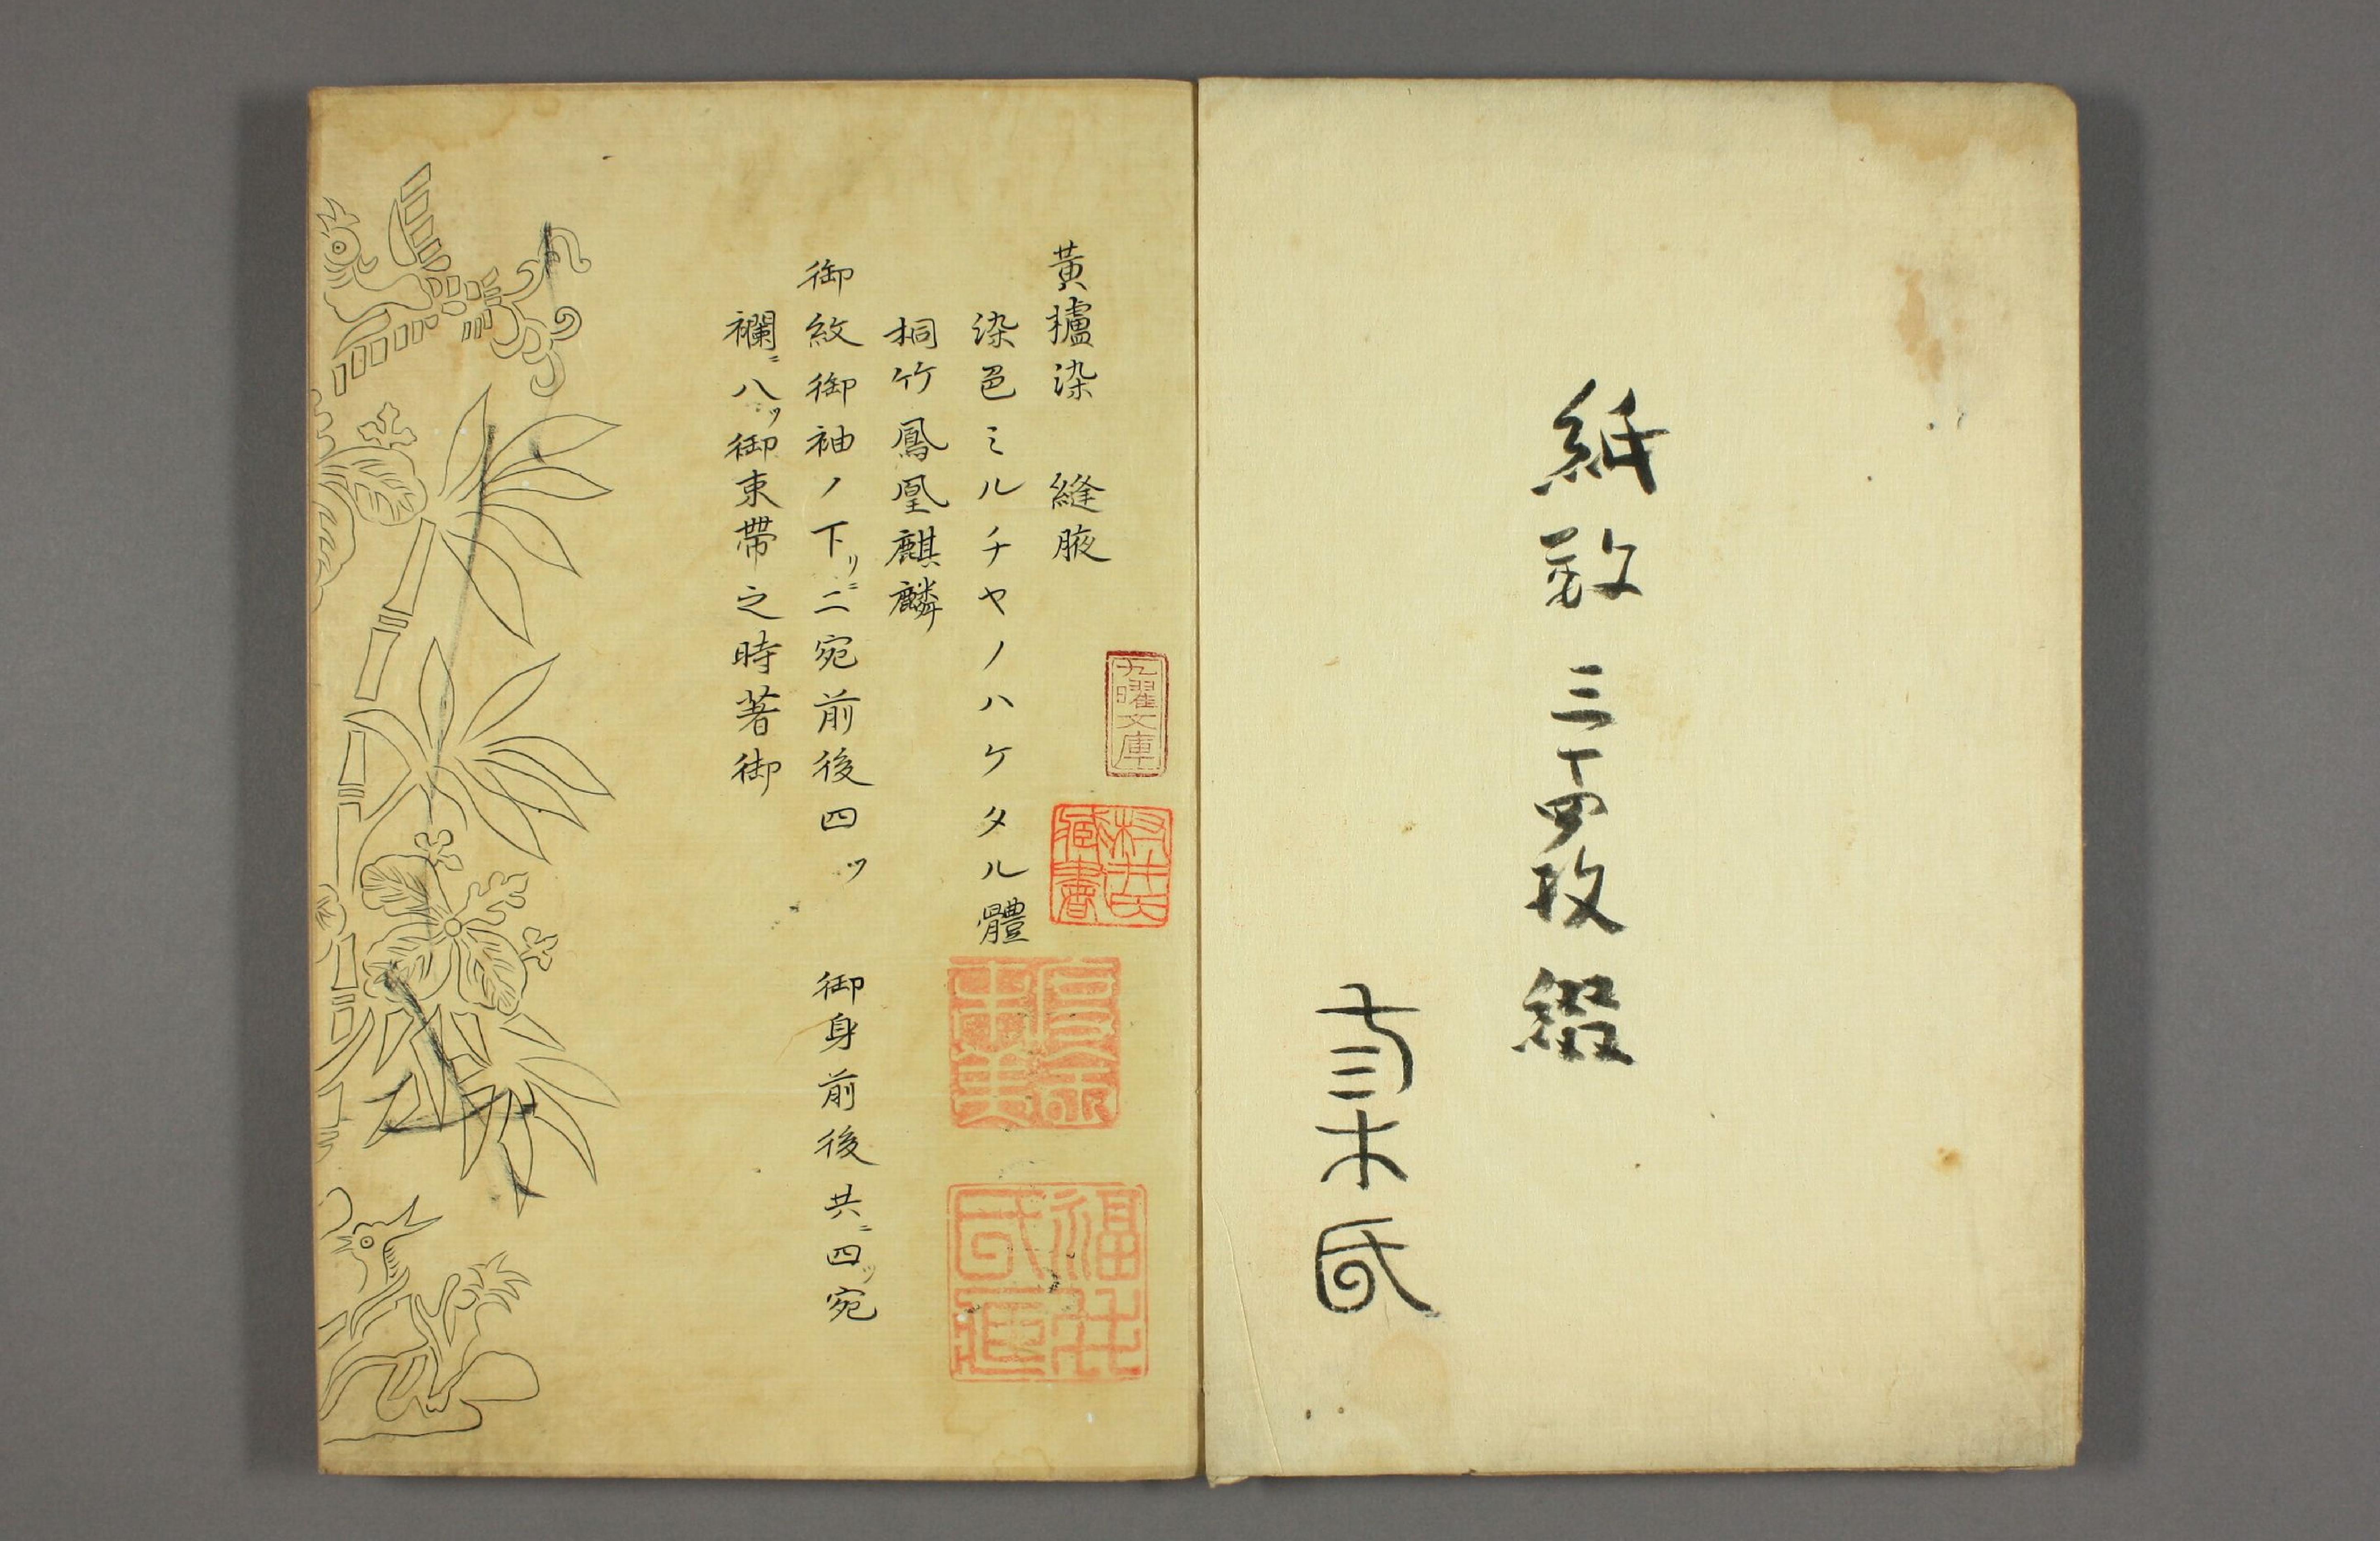 紙数三十四枚綴
黄櫨染　縫腋
染色ミルチヤノハケタル體
桐竹鳳凰麒麟
御紋御袖ノ下リニ二宛前後四ツ　御身前後共ニ四ツ宛
襴ニ八ツ御束帯之時著御
九曜文庫
村井氏
蔵書